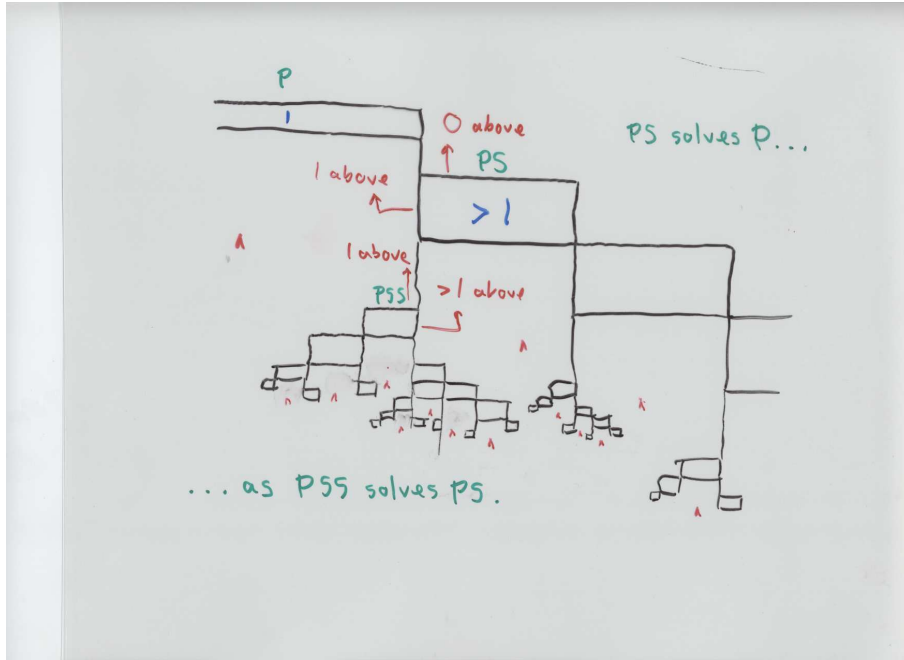 P
1
0 above
PS solves P...
PS
1 above
> 1
1 above
PSS
>1 above
... as PSS solves PS.